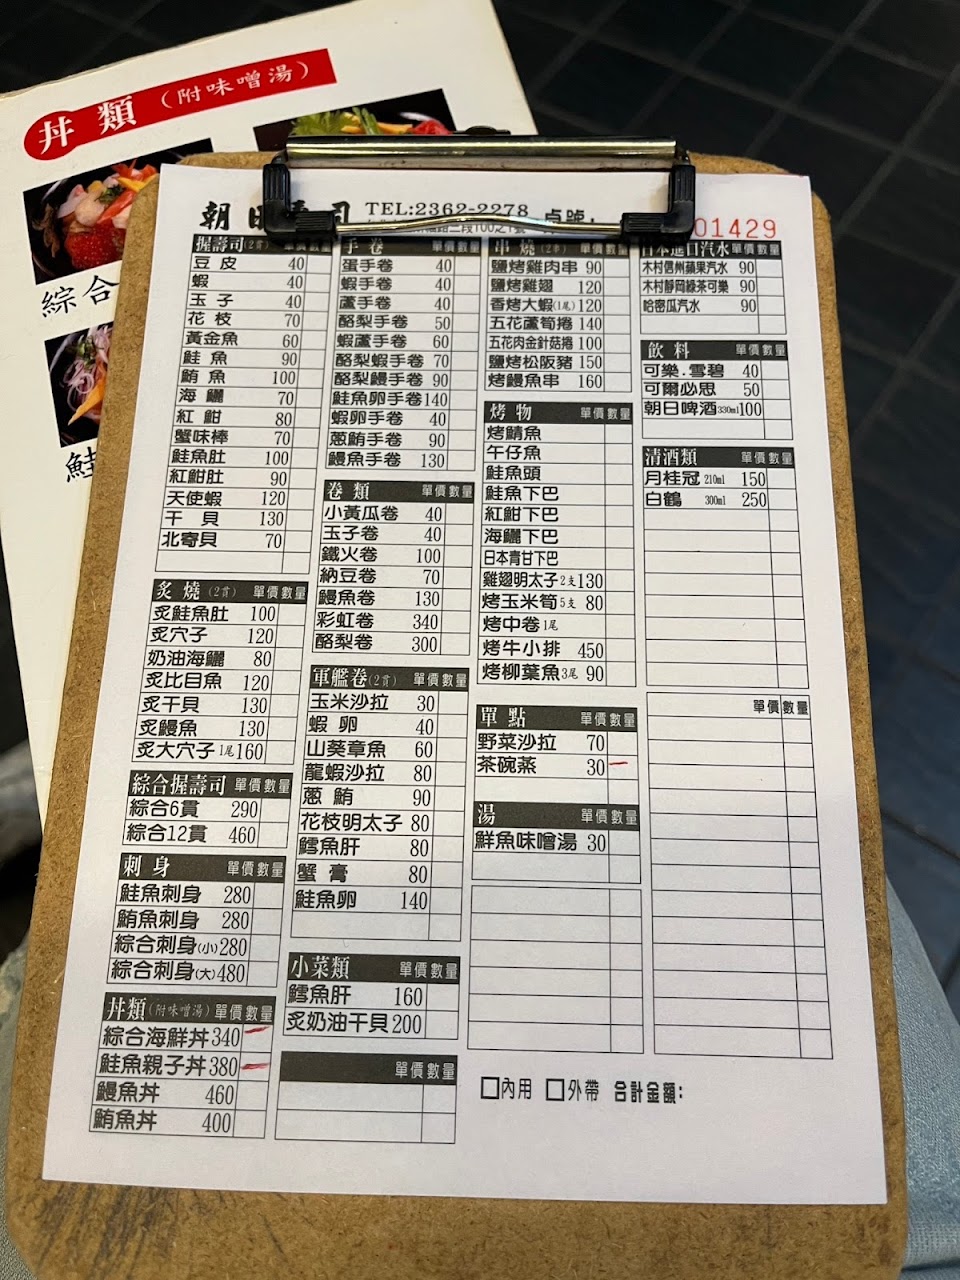 丼類（附味噌湯）
綜合
鮭
朝 司 TEL:2362-2278
01429
握壽司(2貫) 單價數量
豆皮 40
蝦 40
玉子 40
花枝 70
黃金魚 60
鮭魚 90
鮪魚 100
海鱺 70
紅魽 80
蟹味棒 70
鮭魚肚 100
紅魽肚 90
天使蝦 120
干貝 130
北寄貝 70
炙燒(2貫) 單價數量
炙鮭魚肚 100
炙穴子 120
奶油海鱺 80
炙比目魚 120
炙干貝 130
炙鰻魚 130
炙大穴子1尾 160
綜合握壽司 單價數量
綜合6貫 290
綜合12貫 460
刺身 單價數量
鮭魚刺身 280
鮪魚刺身 280
綜合刺身(小) 280
綜合刺身(大) 480
丼類(附味噌湯) 單價數量
綜合海鮮丼 340
鮭魚親子丼 380
鰻魚丼 460
鮪魚丼 400
手卷 單價數量
蛋手卷 40
蝦手卷 40
蘆手卷 40
酪梨手卷 50
蝦蘆手卷 60
酪梨蝦手卷 70
酪梨鰻手卷 90
鮭魚卵手卷 140
蝦卵手卷 40
蔥鮪手卷 90
鰻魚手卷 130
卷類 單價數量
小黃瓜卷 40
玉子卷 40
鐵火卷 100
納豆卷 70
鰻魚卷 130
彩虹卷 340
酪梨卷 300
軍艦卷(2貫) 單價數量
玉米沙拉 30
蝦卵 40
山葵章魚 60
龍蝦沙拉 80
蔥鮪 90
花枝明太子 80
鱈魚肝 80
蟹膏 80
鮭魚卵 140
小菜類 單價數量
鱈魚肝 160
炙奶油干貝 200
單價數量
串燒(2串) 單價數量
鹽烤雞肉串 90
鹽烤雞翅 120
香烤大蝦(1尾) 120
五花蘆筍捲 140
五花肉金針菇捲 100
鹽烤松阪豬 150
烤鰻魚串 160
烤物 單價數量
烤鯖魚
午仔魚
鮭魚頭
鮭魚下巴
紅魽下巴
海鱺下巴
日本青甘下巴
雞翅明太子2支 130
烤玉米筍5支 80
烤中卷1尾
烤牛小排 450
烤柳葉魚3尾 90
單點 單價數量
野菜沙拉 70
茶碗蒸 30
湯 單價數量
鮮魚味噌湯 30
日本進口汽水 單價數量
木村信州蘋果汽水 90
木村靜岡綠茶可樂 90
哈密瓜汽水 90
飲料 單價數量
可樂.雪碧 40
可爾必思 50
朝日啤酒330ml 100
清酒類 單價數量
月桂冠 210ml 150
白鶴 300ml 250
單價數量
□內用 □外帶 合計金額: